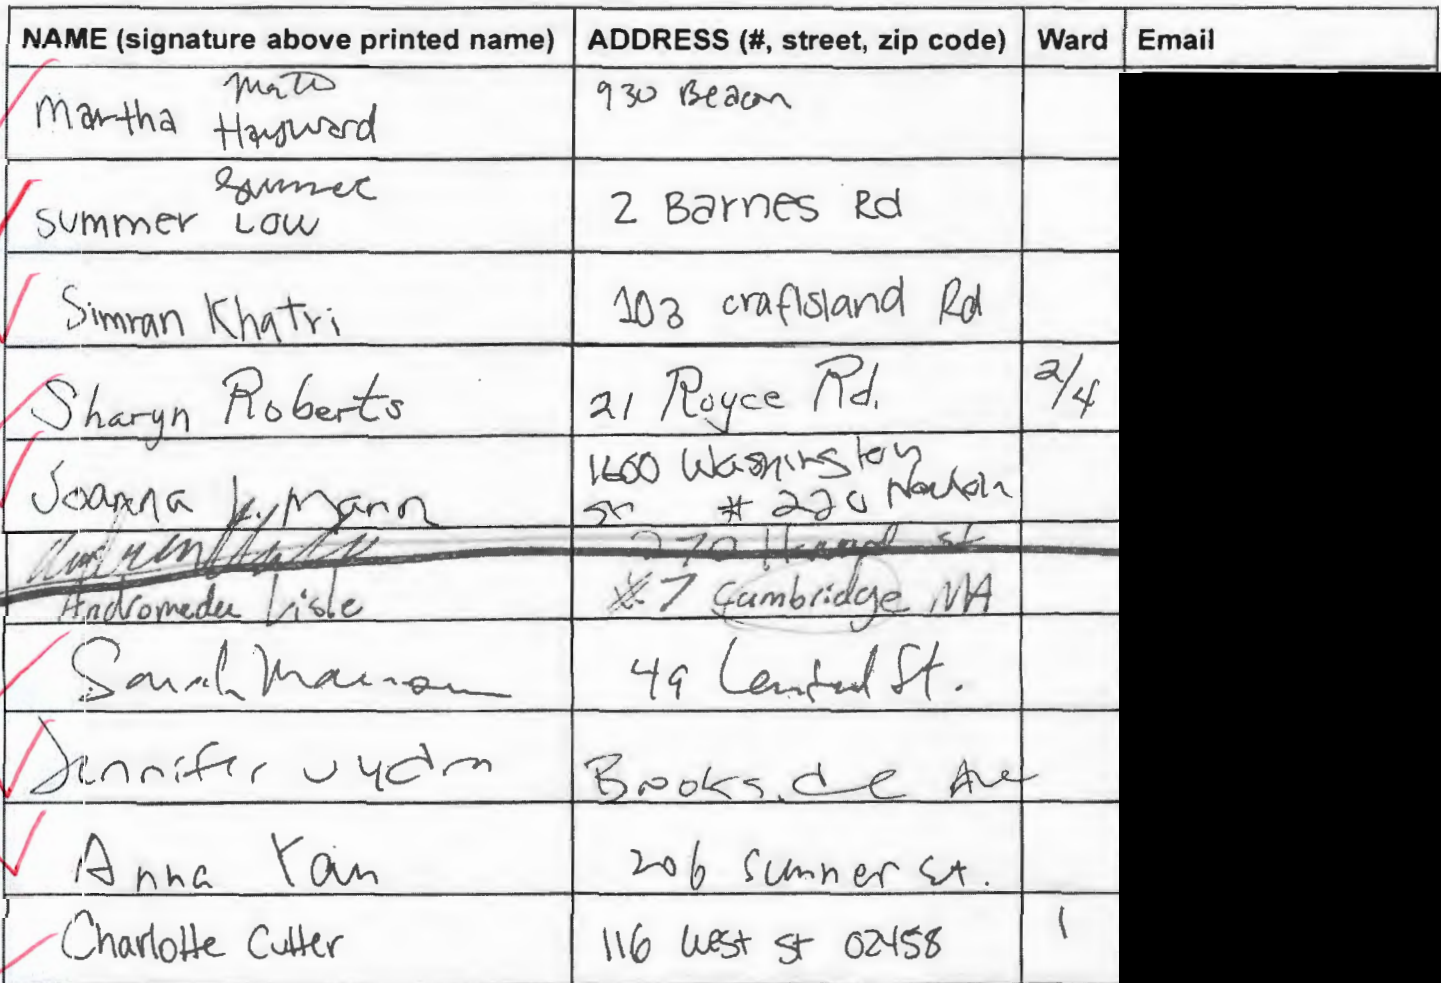 NAME (signature above printed name) ADDRESS (#, street, zip code) Ward Email
Martha Hayward 930 Beacon
Summer
Summer Low 2 Barnes Rd
Simran Khatri 103 craftsland Rd
Sharyn Roberts 21 Royce Rd. 2/4
1600 Washington
Joanna K. Mann St # 220 Newton
270 st
Andromeda Lisle #7 Cambridge MA
Sarah 49 St.
Jennifer Brookside Ave
Anna Yan 206 Sumner St.
Charlotte Cutter 116 West St 02458 1